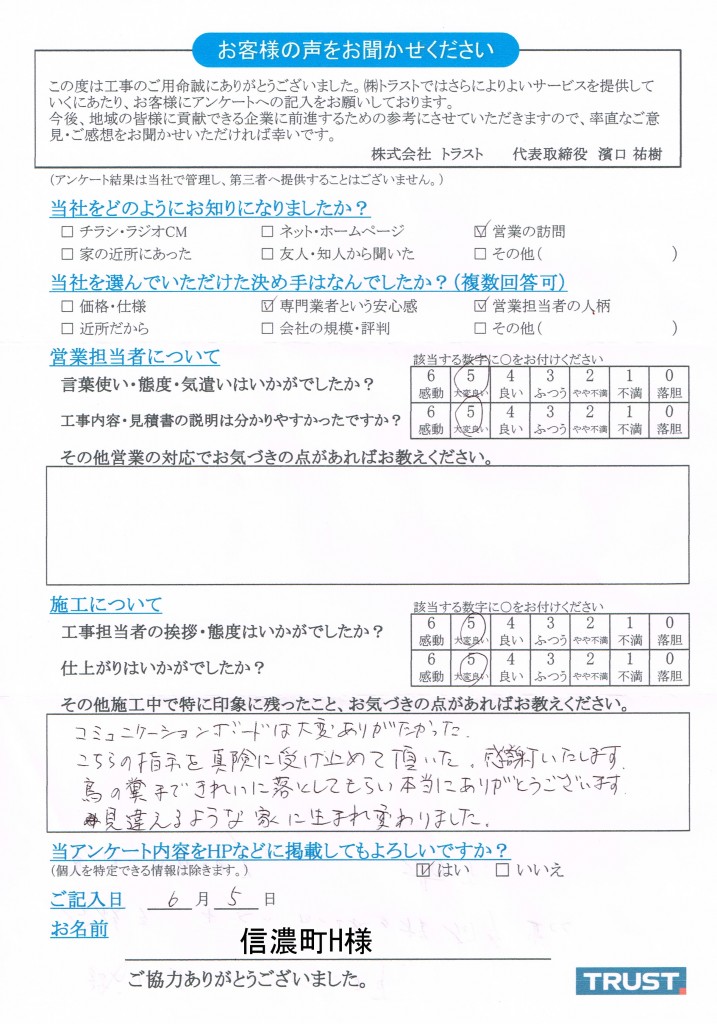 お客様の声をお聞かせください
この度は工事のご用命誠にありがとうございました。㈱トラストではさらによりよいサービスを提供して
いくにあたり、お客様にアンケートへの記入をお願いしております。
今後、地域の皆様に貢献できる企業に前進するための参考にさせていただきますので、率直なご意
見・ご感想をお聞かせいただければ幸いです。
株式会社 トラスト 代表取締役 濱口 祐樹
(アンケート結果は当社で管理し、第三者へ提供することはございません。)
当社をどのようにお知りになりましたか?
□ チラシ・ラジオCM □ ネット・ホームページ ☑ 営業の訪問
□ 家の近所にあった □ 友人・知人から聞いた □ その他( )
当社を選んでいただけた決め手はなんでしたか?(複数回答可)
□ 価格・仕様 ☑ 専門業者という安心感 ☑ 営業担当者の人柄
□ 近所だから □ 会社の規模・評判 □ その他( )
営業担当者について 該当する数字に○をお付けください
言葉使い・態度・気遣いはいかがでしたか? 6 5 4 3 2 1 0
感動 大変良い 良い ふつう やや不満 不満 落胆
工事内容・見積書の説明は分かりやすかったですか? 6 5 4 3 2 1 0
感動 大変良い 良い ふつう やや不満 不満 落胆
その他営業の対応でお気づきの点があればお教えください。
施工について 該当する数字に○をお付けください
工事担当者の挨拶・態度はいかがでしたか? 6 5 4 3 2 1 0
感動 大変良い 良い ふつう やや不満 不満 落胆
仕上がりはいかがでしたか? 6 5 4 3 2 1 0
感動 大変良い 良い ふつう やや不満 不満 落胆
その他施工中で特に印象に残ったこと、お気づきの点があればお教えください。
コミュニケーションボードは大変ありがたかった.
こちらの指示を真険に受け止めて頂いた。感謝いたします.
鳥の糞まできれいに落としてもらい本当にありがとうございます.
見違えるような家に生まれ変わりました.
当アンケート内容をHPなどに掲載してもよろしいですか?
(個人を特定できる情報は除きます。) ☑ はい □ いいえ
ご記入日 6 月 5 日
お名前 信濃町H様
ご協力ありがとうございました。
TRUST.